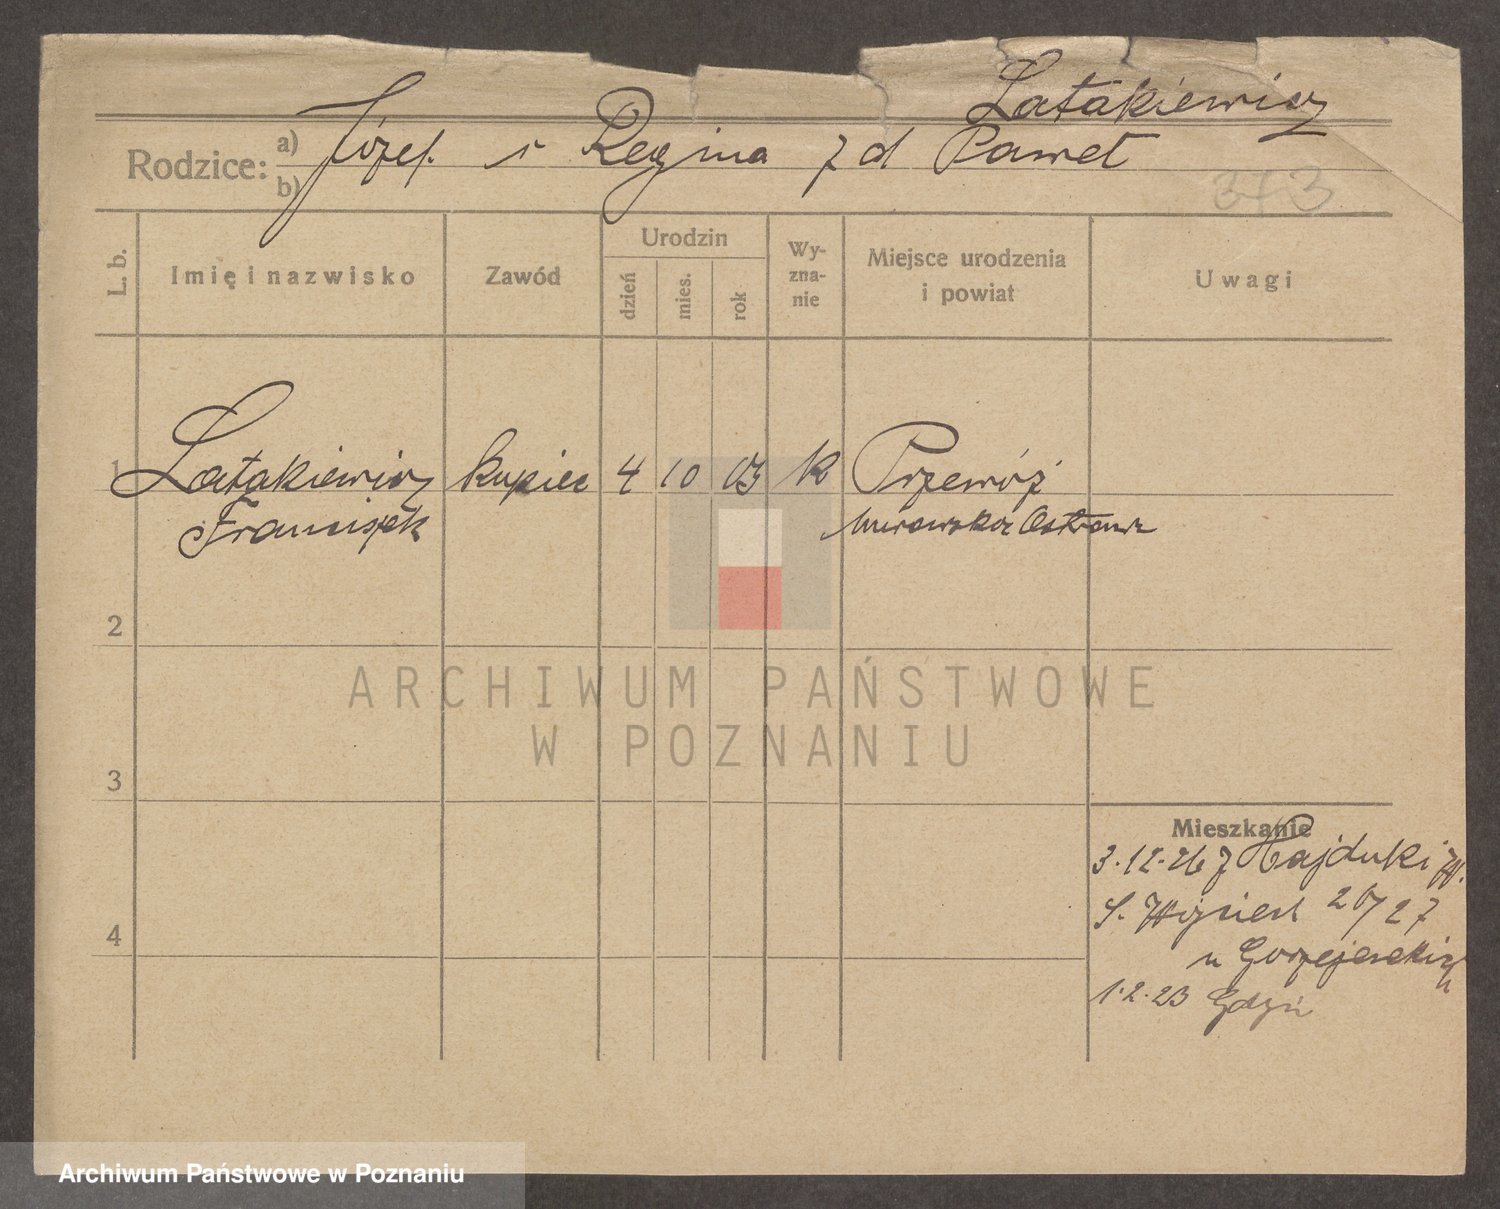 Latakiewicz
Rodzice: a) Józef i Regina z d Paweł
b)
373
L. b.
Imię i nazwisko
Zawód
Urodzin
dzień
mies.
rok
Wy-
zna-
nie
Miejsce urodzenia
i powiat
Uwagi
1 Latakiewicz kupiec 4 10 03 k Przewóz
Franciszek Ostrawa
2
3
4
Mieszkanie
3.12.26 z Hajduki W.
S. Wojciech 26/27
u
1.2.23 Gdyń
ARCHIWUM PAŃSTWOWE
W POZNANIU
Archiwum Państwowe w Poznaniu